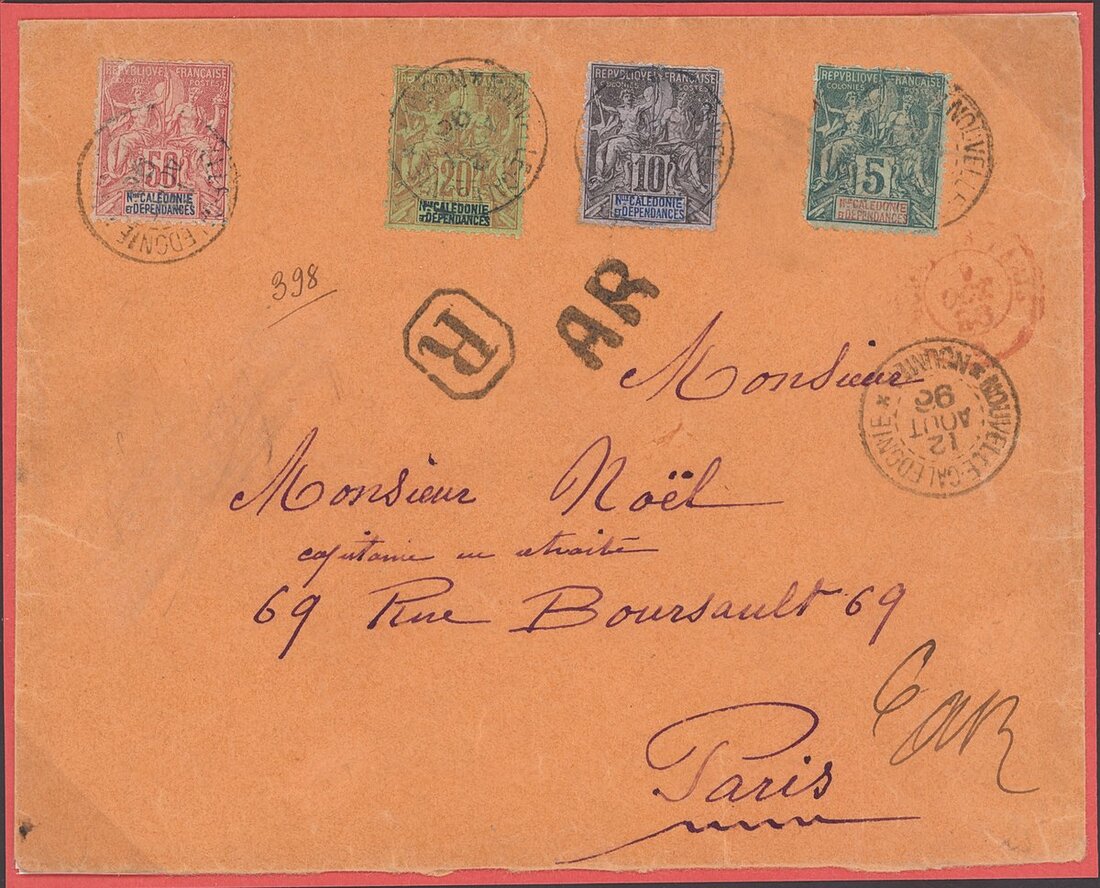 REPVBLIQVE FRANÇAISE
COLONIES POSTES
50
Nlle CALÉDONIE
ET DÉPENDANCES
REPVBLIQVE FRANÇAISE
20
Nlle CALÉDONIE
ET DÉPENDANCES
REPVBLIQVE FRANÇAISE
COLONIES POSTES
10
Nlle CALÉDONIE
ET DÉPENDANCES
REPVBLIQVE FRANÇAISE
COLONIES POSTES
5
Nlle CALÉDONIE
ET DÉPENDANCES
NOUVELLE
398
R
AR
Monsieur
NOUVELLE-CALEDONIE * NOUMEA *
12
AOUT
96
Monsieur Noël
capitaine en retraite
69 Rue Boursault 69
AR
Paris